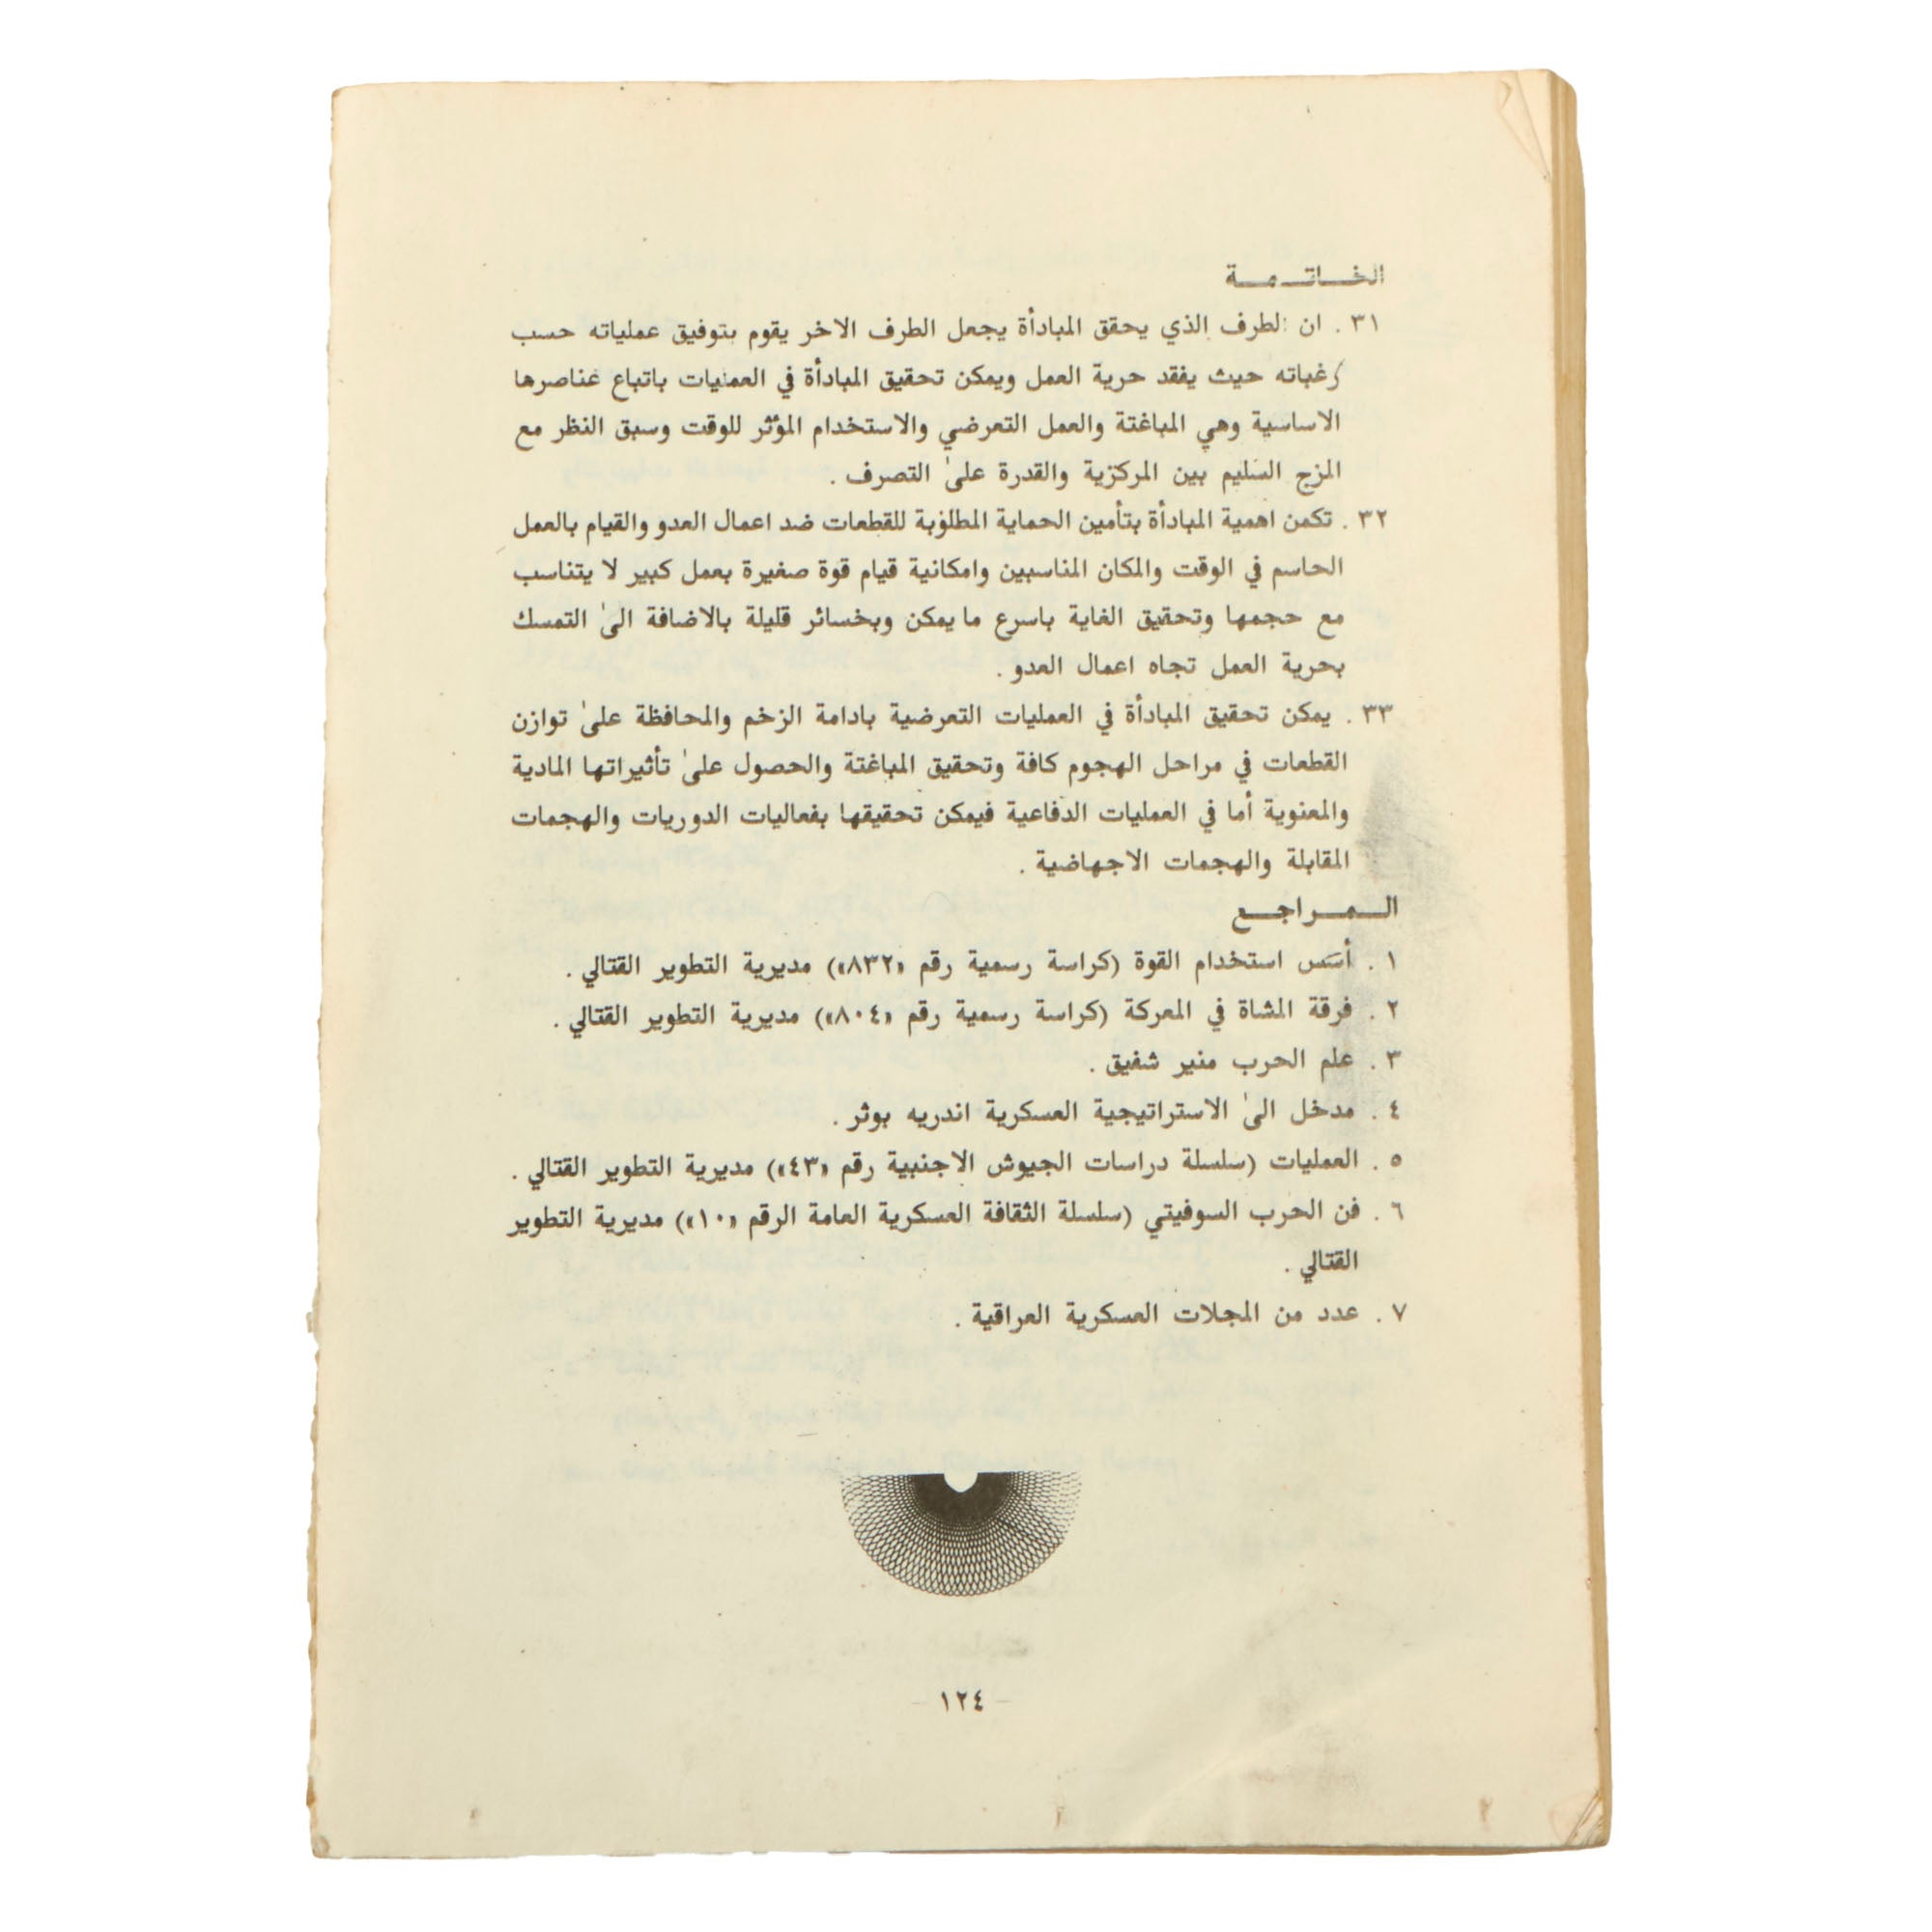 الخاتمة
٣١ . ان الطرف الذي يحقق المبادأة يجعل الطرف الاخر يقوم بتوفيق عملياته حسب
رغباته حيث يفقد حرية العمل ويمكن تحقيق المبادأة في العمليات باتباع عناصرها
الاساسية وهي المباغتة والعمل التعرضي والاستخدام المؤثر للوقت وسبق النظر مع
المزج السليم بين المركزية والقدرة على التصرف .
٣٢ . تكمن اهمية المبادأة بتأمين الحماية المطلوبة للقطعات ضد اعمال العدو والقيام بالعمل
الحاسم في الوقت والمكان المناسبين وامكانية قيام قوة صغيرة بعمل كبير لا يتناسب
مع حجمها وتحقيق الغاية باسرع ما يمكن وبخسائر قليلة بالاضافة الى التمسك
بحرية العمل تجاه اعمال العدو .
٣٣ . يمكن تحقيق المبادأة في العمليات التعرضية بادامة الزخم والمحافظة على توازن
القطعات في مراحل الهجوم كافة وتحقيق المباغتة والحصول على تأثيراتها المادية
والمعنوية أما في العمليات الدفاعية فيمكن تحقيقها بفعاليات الدوريات والهجمات
المقابلة والهجمات الاجهاضية .
المراجع
١ . أسس استخدام القوة (كراسة رسمية رقم «٨٣٢») مديرية التطوير القتالي .
٢ . فرقة المشاة في المعركة (كراسة رسمية رقم «٨٠٤») مديرية التطوير القتالي .
٣ . علم الحرب منير شفيق .
٤ . مدخل الى الاستراتيجية العسكرية اندريه بوثر .
٥ . العمليات (سلسلة دراسات الجيوش الاجنبية رقم «٤٣») مديرية التطوير القتالي .
٦ . فن الحرب السوفيتي (سلسلة الثقافة العسكرية العامة الرقم «١٠») مديرية التطوير
القتالي .
٧ . عدد من المجلات العسكرية العراقية .
- ١٢٤ -